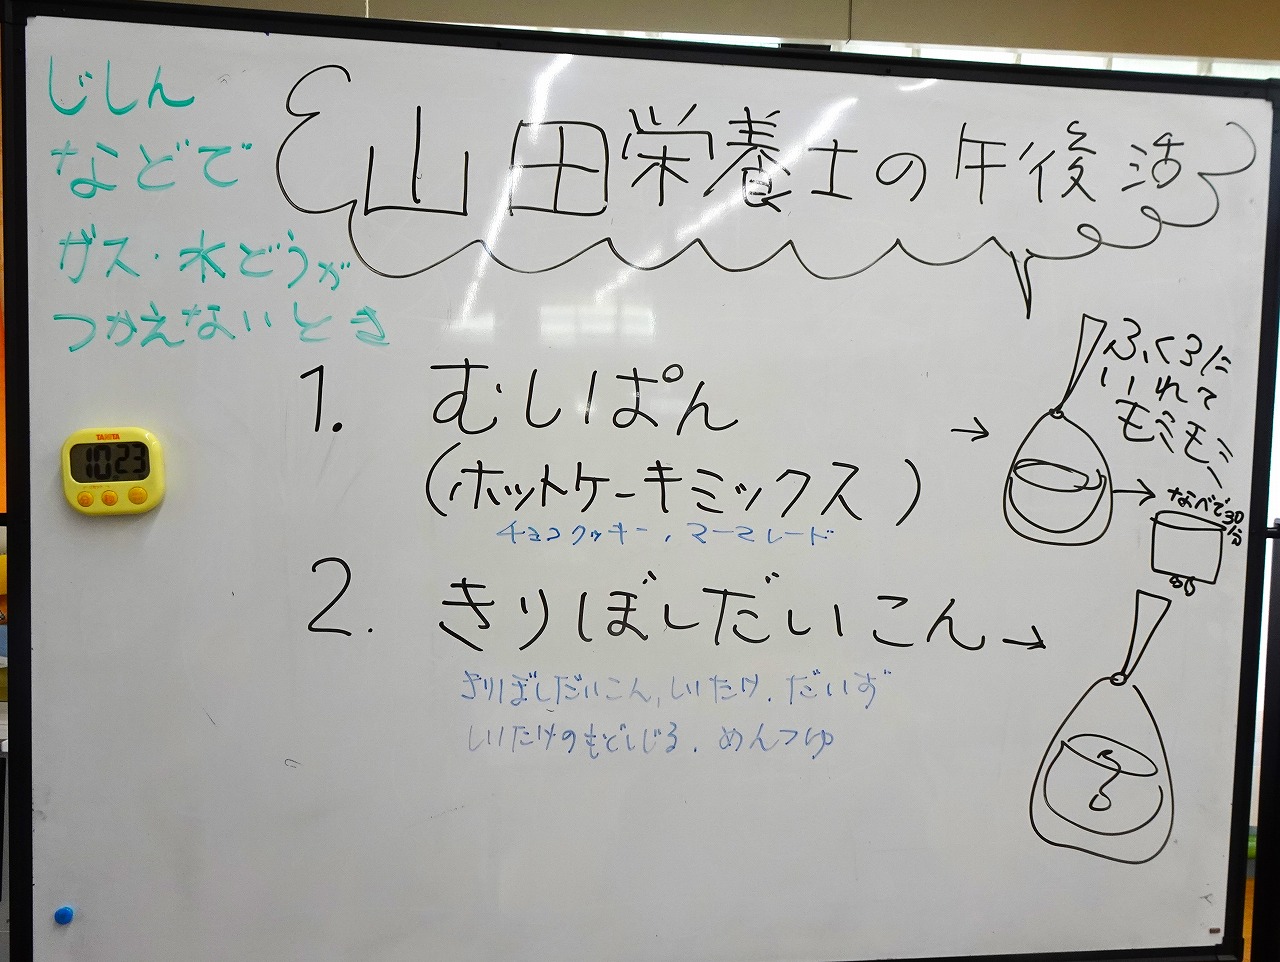 じしん
などで
ガス・水どうが
つかえないとき
山田栄養士の午後活
TANITA
10:23
1. むしぱん
(ホットケーキミックス)
チョコクッキー、マーマレード
→
ふくろに
いれて
モミモミ
→
なべで30分
2. きりぼしだいこん→
きりぼしだいこん、しいたけ、だいず
しいたけのもどしじる、めんつゆ